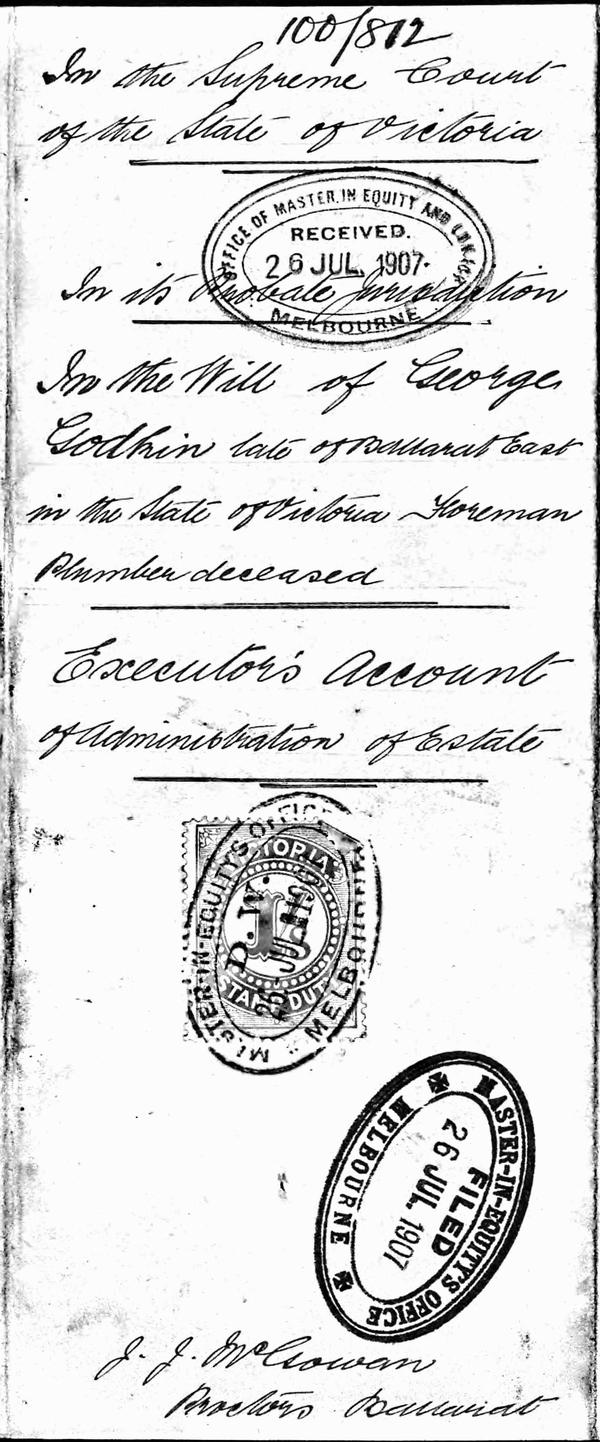 100/812
In the Supreme Court
of the State of Victoria
OFFICE OF MASTER-IN-EQUITY AND LUNACY
RECEIVED.
26 JUL. 1907.
MELBOURNE
In its Probate Jurisdiction
In the Will of George
Godkin late of Ballarat East
in the State of Victoria Foreman
Plumber deceased
Executor's Account
of Administration of Estate
MASTER-IN-EQUITY'S OFFICE
VICTORIA
D.W.
26 JUL
STAMP DUTY
MELBOURNE
MASTER-IN-EQUITY'S OFFICE
FILED
26 JUL. 1907
MELBOURNE
J. J. McGowan
Proctors Ballarat